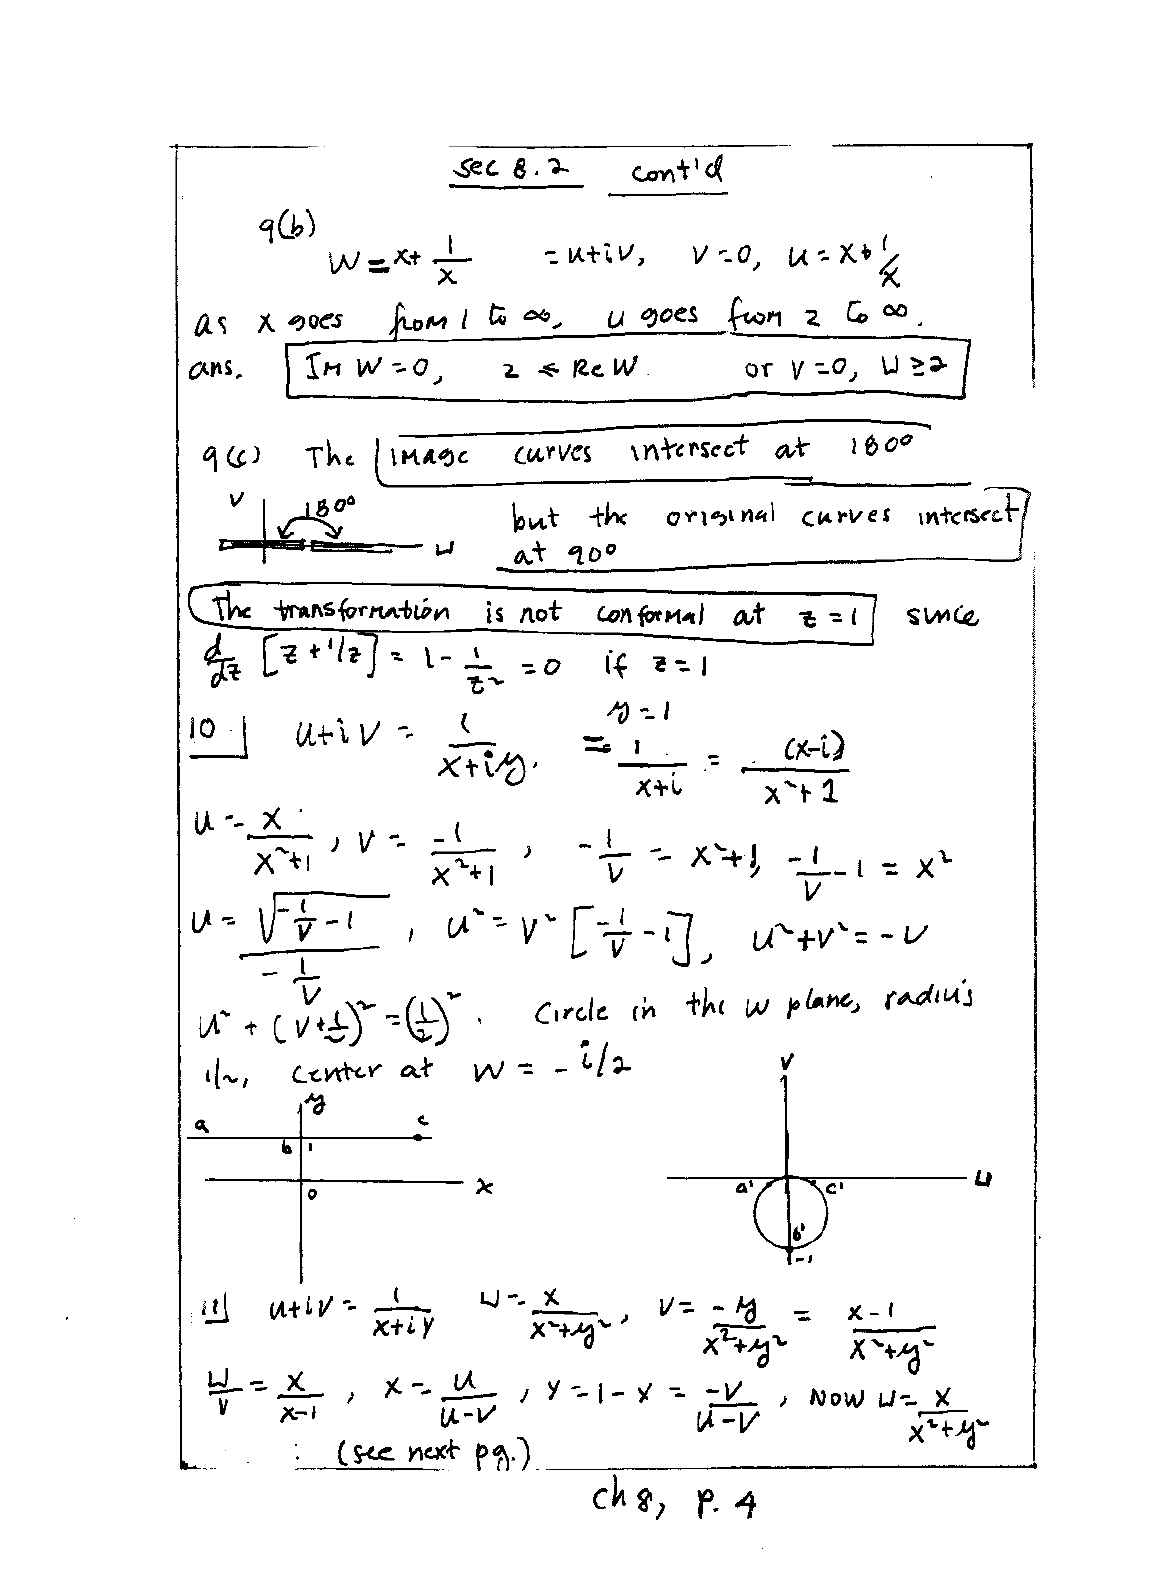 sec 8.2 cont'd
9(b)
W = x + 1/x = u+iv, v=0, u = x + 1/x
as x goes from 1 to ∞, u goes from 2 to ∞.
ans. Im W = 0, 2 ≤ Re W or v=0, u ≥ 2
9(c) The image curves intersect at 180°
v 180° u
but the original curves intersect
at 90°
The transformation is not conformal at z = 1 since
d/dz [z + 1/z] = 1 - 1/z² = 0 if z = 1
10 u+iv = 1/(x+iy) y=1 = 1/(x+i) = (x-i)/(x²+1)
u = x/(x²+1), v = -1/(x²+1), -1/v = x²+1, -1/v - 1 = x²
u = √(-1/v - 1)/(-1/v), u² = v² [-1/v - 1], u²+v² = -v
u² + (v+1/2)² = (1/2)². Circle in the w plane, radius
1/2, center at w = -i/2
v
y
a b 1 c
0 x
a' c' u
b'
-1
11 u+iv = 1/(x+iy) u = x/(x²+y²), v = -y/(x²+y²) = x-1/(x²+y²)
u/v = x/(x-1), x = u/(u-v), y = 1-x = -v/(u-v), Now u = x/(x²+y²)
: (see next pg.)
ch 8, p. 4